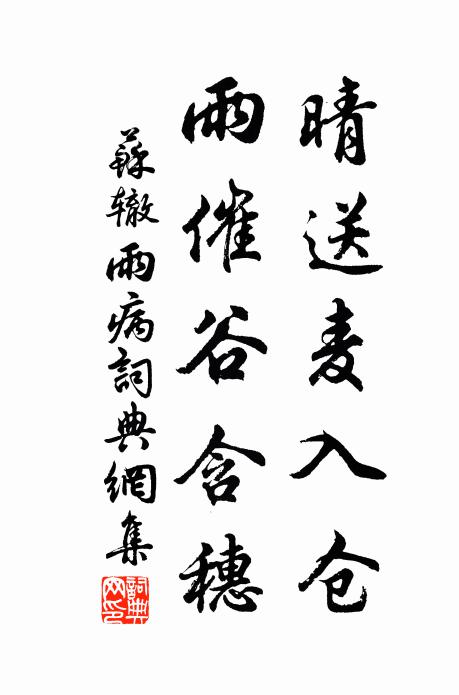 晴送麦入仓
雨催谷含穗
蘇辙雨病詞典網集
詞典网印